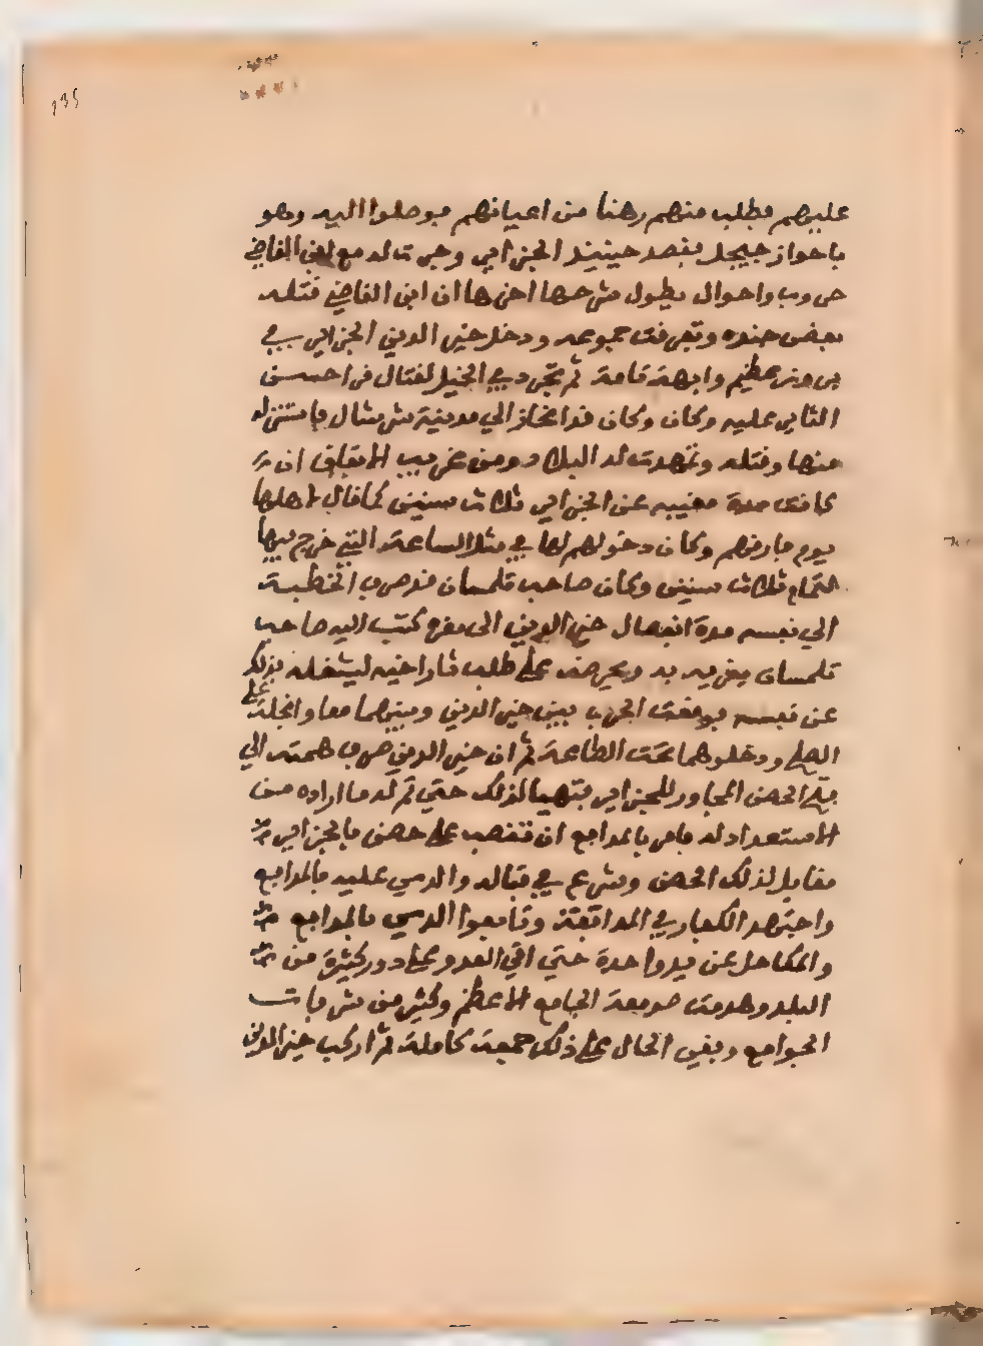 عليهم فطلب منهم رهنا من اعيانهم فوصلوا اليه وهو
باحواز جيجل فقصد حينيذ الجزاير وجرت له مع ابن القاضي
حروب واحوال يطول شرحها اخرها ان ابن القاضي قتله
بعض جنده وتفرقت جموعه ودخل خير الدين الجزاير في
بروز عظيم وابهة تامة ثم تجرد في الخيل لقتال قرا حسن
الثاير عليه وكان وكان قد انحاز الي مدينة شرشال فاستنزله
منها وقتله وتمهدت له البلاد ومن غريب الاتفاق ان
كانت مدة مغيبه عن الجزاير ثلاث سنين كما قال لاهلها
يوم فارقهم وكان دخولهم لها في مثل الساعة التي خرج فيها
لتمام ثلاث سنين وكان صاحب تلمسان قد صرف الخطبة
الي نفسه مدة انفصال خير الدين الي مقره كتب اليه صاحب
تلمسان يغريه به ويحرضه على طلب ثار اخيه ليشغله بذلك
عن نفسه فوقعت الحرب بين خير الدين وبينهما معا وانجلت على
الصلح ودخلوهما تحت الطاعة ثم ان خير الدين صرف همته الي
فتح الحصن المجاور للجزاير فتهيا لذلك حتي تم له ما اراده من
الاستعداد له فامر بالمدافع ان تنصب على حصن بالجزاير
مقابل لذلك الحصن وشرع في قتاله والرمي عليه بالمدافع
واجتهد الكفار في المدافعة وتابعوا الرمي بالمدافع
والمكاحل عن يد واحدة حتي اتي العدو على دور كثيرة من
البلد وهدمت صومعة الجامع الاعظم وكثير من شرفات
الجوامع وبقي الحال على ذلك جمعة كاملة ثم اركب خير الدين